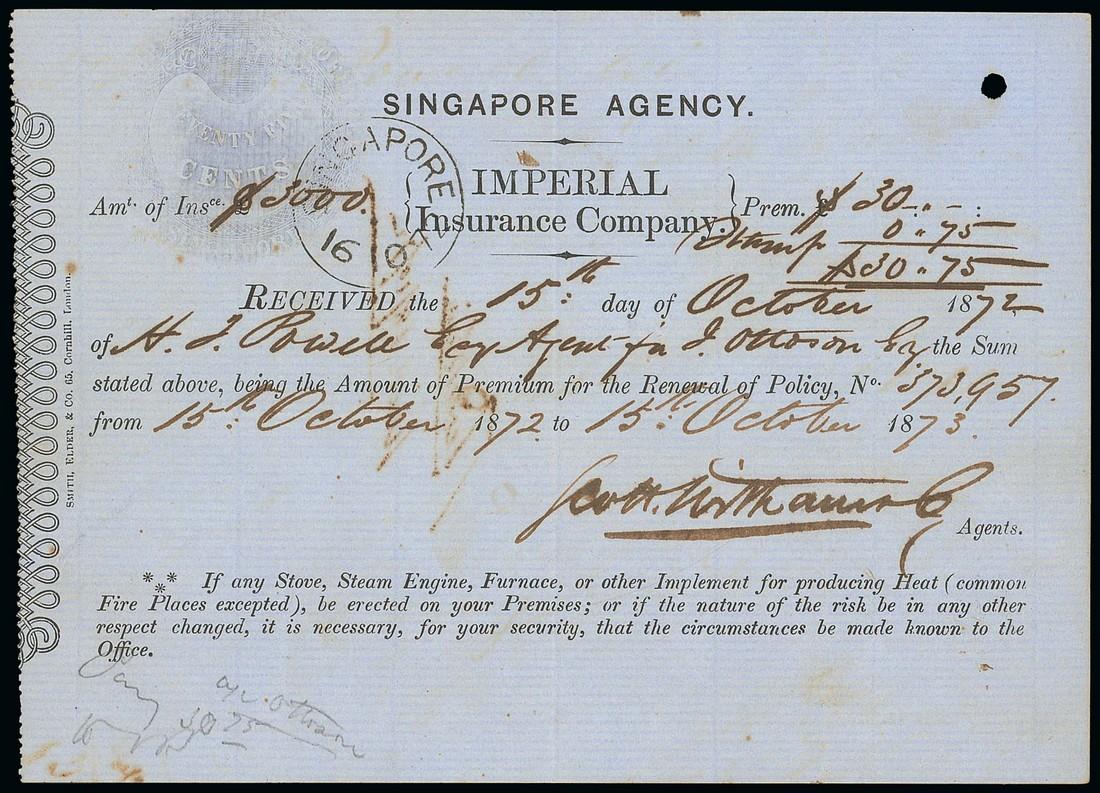 SINGAPORE AGENCY.
TWENTY FIVE
CENTS
SINGAPORE
16 O 72
Amt. of Insce. $3000.
IMPERIAL
Insurance Company.
Prem. $ 30 - " - :
Stamp 0 " 75
$30 " 75
RECEIVED the 15th day of October 1872
of H. J. Powell Esq Agent for J. Ottoson Esq the Sum
stated above, being the Amount of Premium for the Renewal of Policy, No. 373,957.
from 15th October 1872 to 15th October 1873.
Agents.
*** If any Stove, Steam Engine, Furnace, or other Implement for producing Heat (common
Fire Places excepted), be erected on your Premises; or if the nature of the risk be in any other
respect changed, it is necessary, for your security, that the circumstances be made known to the
Office.
a/c Ottoson
30 75
SMITH, ELDER, & CO. 65, Cornhill, London.